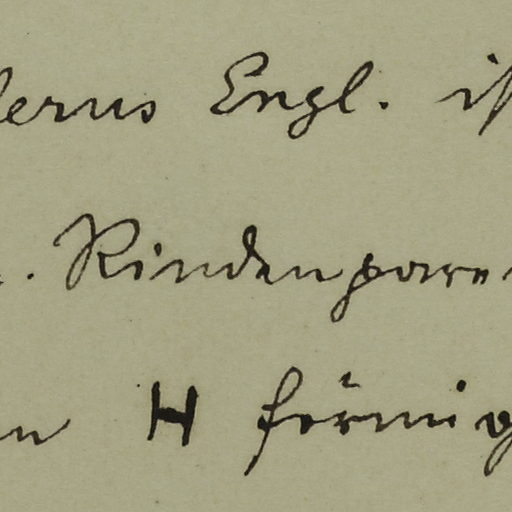 lerus Engl. ist
n. Rindenparen
n H förmig